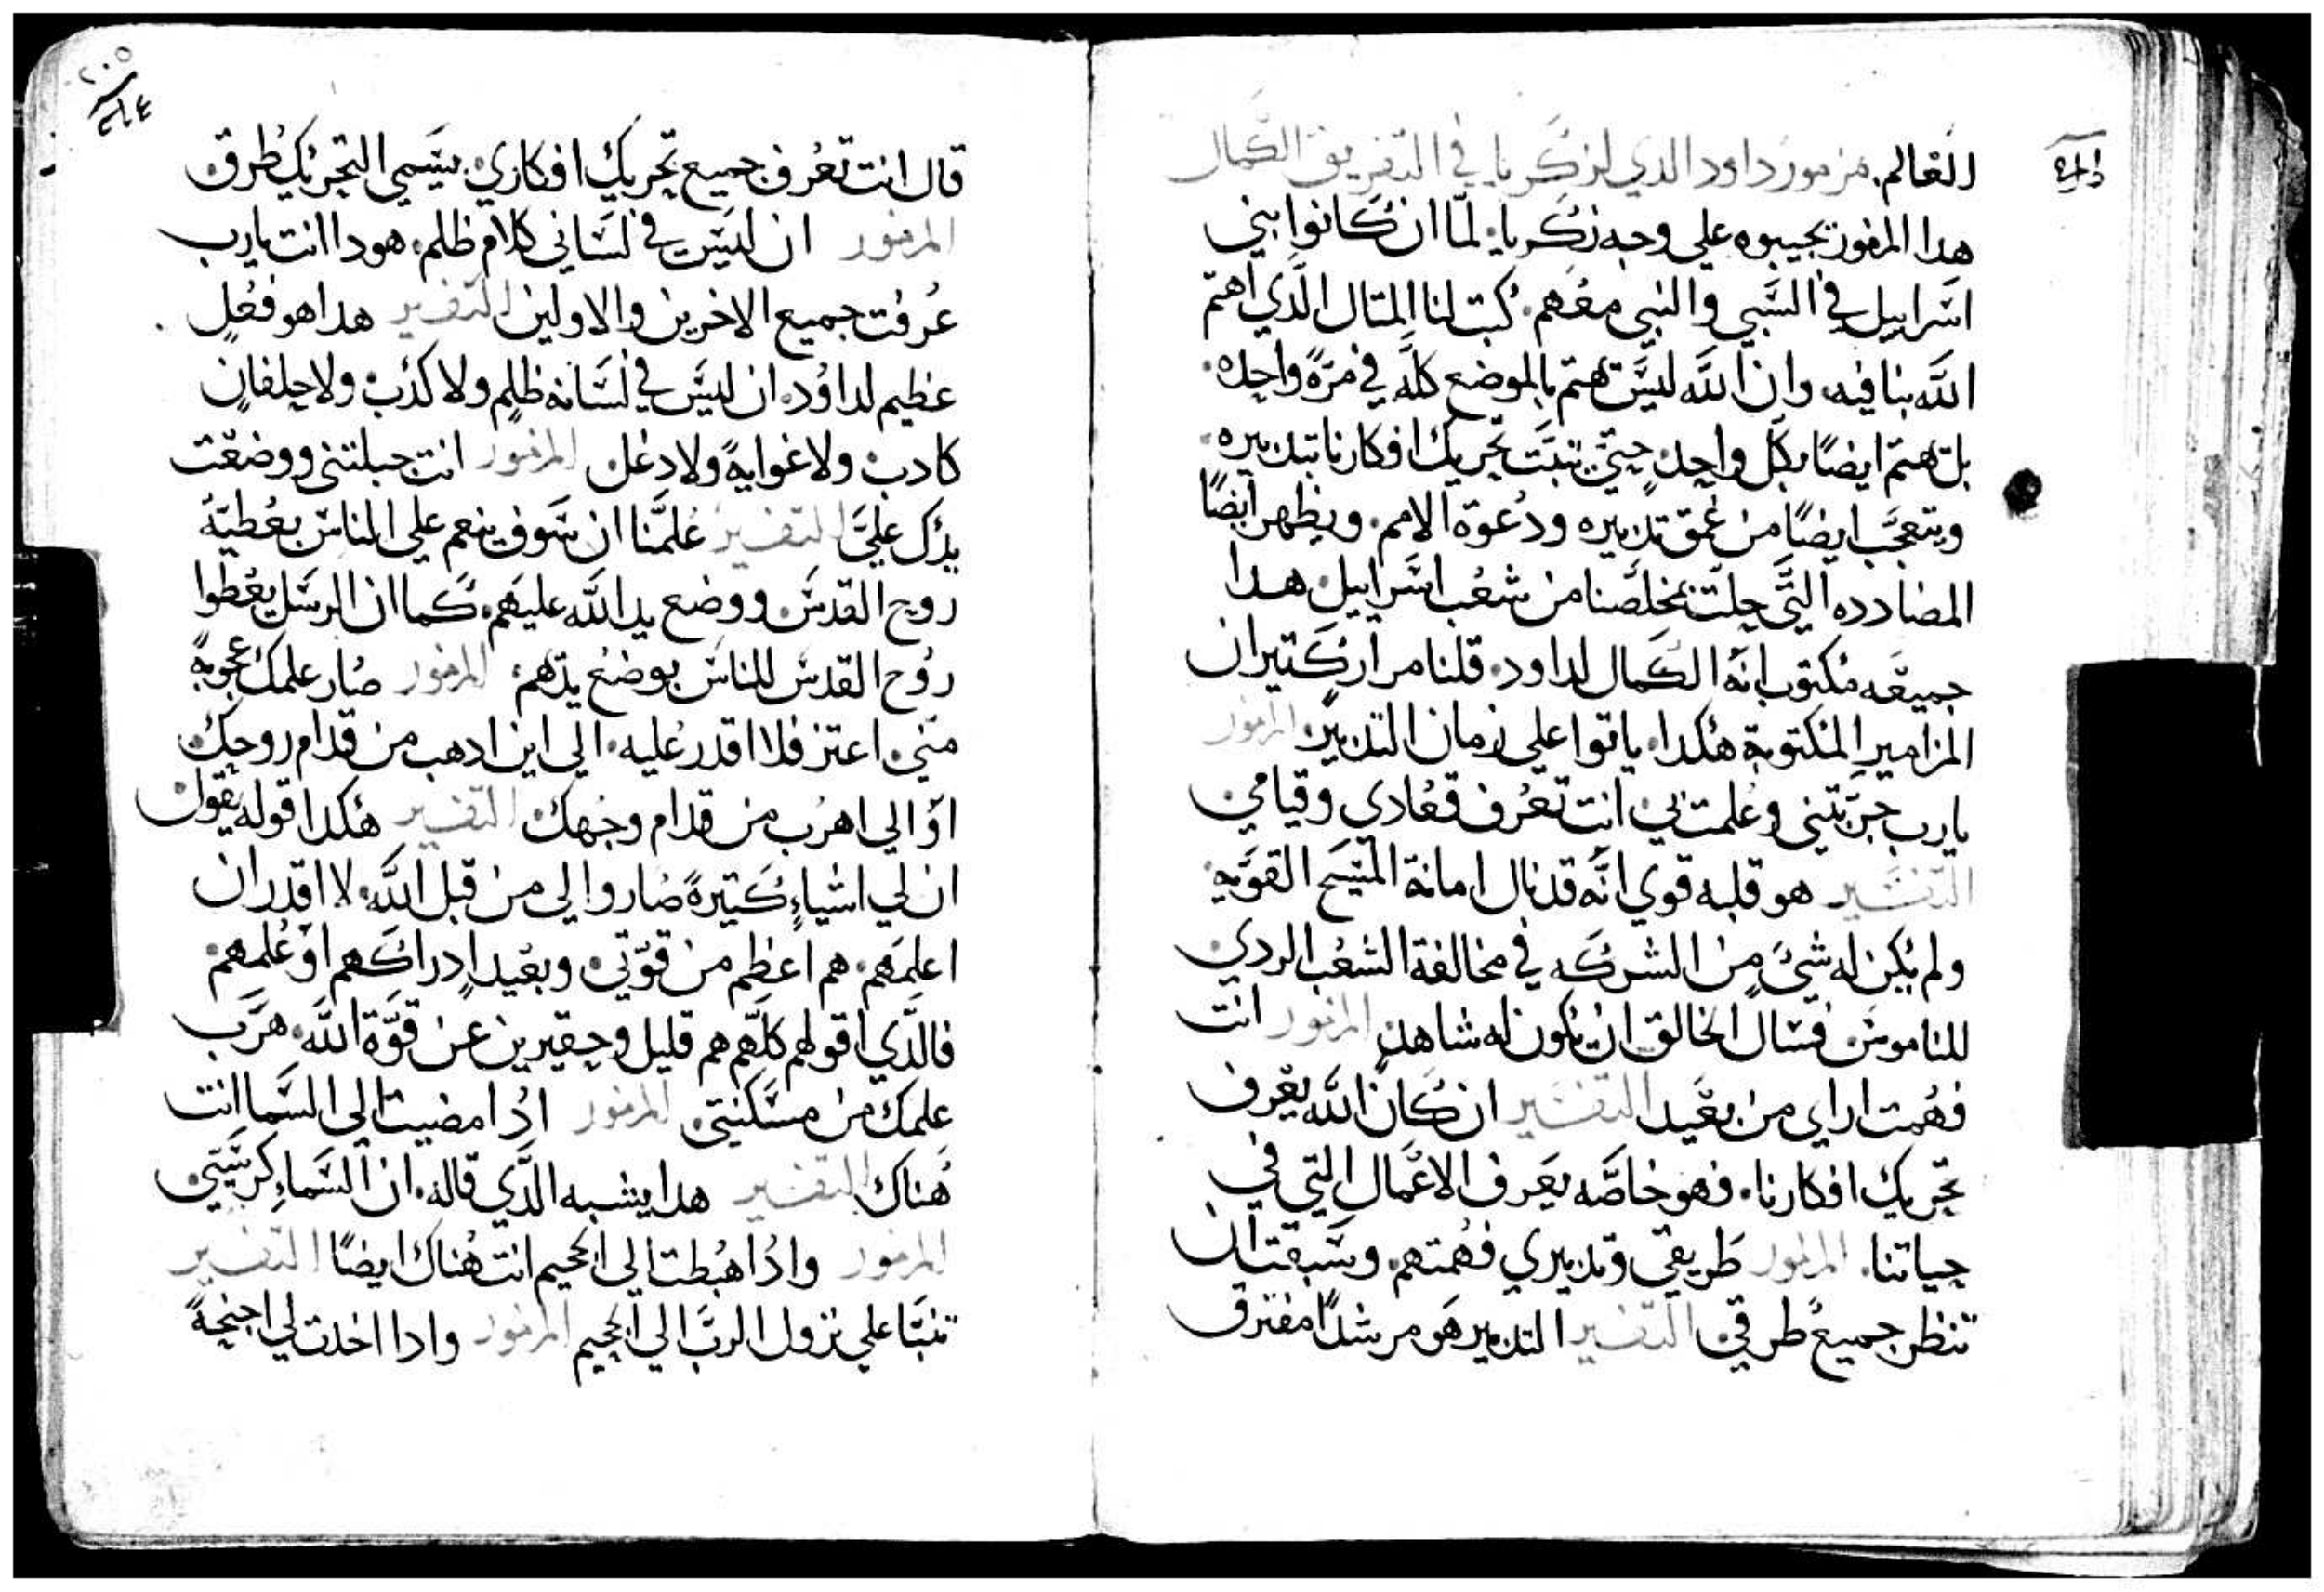 العالم. مزمور داود الدي لزكريا في التفريق الكمال
هدا المزمور يجيبوه علي وجه زكريا. لمّا ان كانوا بني
اسراييل في السبي والنبي معهم. كتب لنا المتال الدي اهتم
اللّه بنا فيه. وان اللّه ليس تهتم بالموضع كلّه في مرّةً واحده.
بل تهتم ايضًا بكل واحد. حيتي تتبت تحريك افكارنا تبدبيره.
ويتعجب ايضًا من عمق تدبيره ودعوة الامم. ويظهر ايضًا
المضادده التي حلت بمخلصنا من شعب اسراييل. هدا
جميعه مكتوب انه الكمال لداود. قلنا مرار كتير ان
المزامير المكتوبة هكدا. ياتوا علي زمان التدبير. المزمور
يارب جرّبتني وعلمت بي. انت تعرف قعادي وقيامي
التفسير هو قلبه قوي انّه قد نال امانة المسيح القويه.
ولم يكن له شيً من الشركه في مخالفة الشعب الردي
للناموس فسال الخالق ان يكون له شاهد المزمور انت
فهمت اراي من بعيد التفسير ان كان اللّه يعرف
تحريك افكارنا. فهو خاصّه يعرف الاعمال التي في
حياتنا. المزمور طريقي وتدبيري فهمتهم. وسبقت ان
تنظر جميع طرقي التفسير التدبير هو مرشدًا مفترق
٢٠٥
قال انت تعرف جميع تحريك افكاري. يسمي التحريك طرق
المزمور ان ليس في لساني كلام ظلم. هودا انت يارب
عرفت جميع الاخرين والاولين التفسير هدا هو فعلٍ
عظيم لداود. ان ليس في لسانه ظلم ولا كدب ولا حلفان
كادب ولا غوايةً ولا دغل المزمور انت جبلتني ووضعت
يدك عليَّ التفسير علمنا ان سوف ينعم علي الناس بعطية
روح القدس. ووضع يد اللّه عليهم. كما ان الرسل يعطوا
روح القدس للناس بوضع يدهم. المزمور صار علمك عجوبةً
منّي. اعتز فلا اقدر عليه. الي اين ادهب من قدام روحك
او الي اهرب من قدام وجهك التفسير هكدا قوله يقول
ان لي اشياء كتيرةً صاروا لي من قبل اللّه. لا اقدر ان
اعلمهم. هم اعظم من قوّتي. وبعيد ادراكهم او علمهم.
فالدي اقولهم كلّهم هم قليل وحقيرين عن قوّة اللّه. هرّب
علمك من مسكنتي. المزمور ادا مضيت الي السما انت
هناك التفسير هدا يشبه الدي قاله. ان السماء كرسيي
المزمور وادا هبطت الي الجحيم انت هناك ايضًا التفسير
تنبّا علي نزول الربّ الي الجحيم المزمور وادا اخدت لي اجنحةً